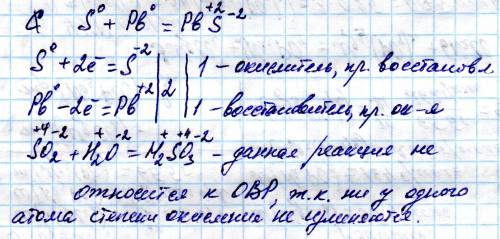 S⁰ + Pb⁰ = Pb⁺²S⁻²
S⁰ + 2ē = S⁻² | 2 | 1 – окислитель, пр. восстановл
Pb⁰ – 2ē = Pb⁺² | 1 – восстановитель, пр. ок-я
S⁺⁴O₂⁻² + H₂⁺O⁻² = H₂⁺S⁺⁴O₃⁻² – данная реакция не
относится к ОВР, т.к. ни у одного
атома степени окисления не изменяются.